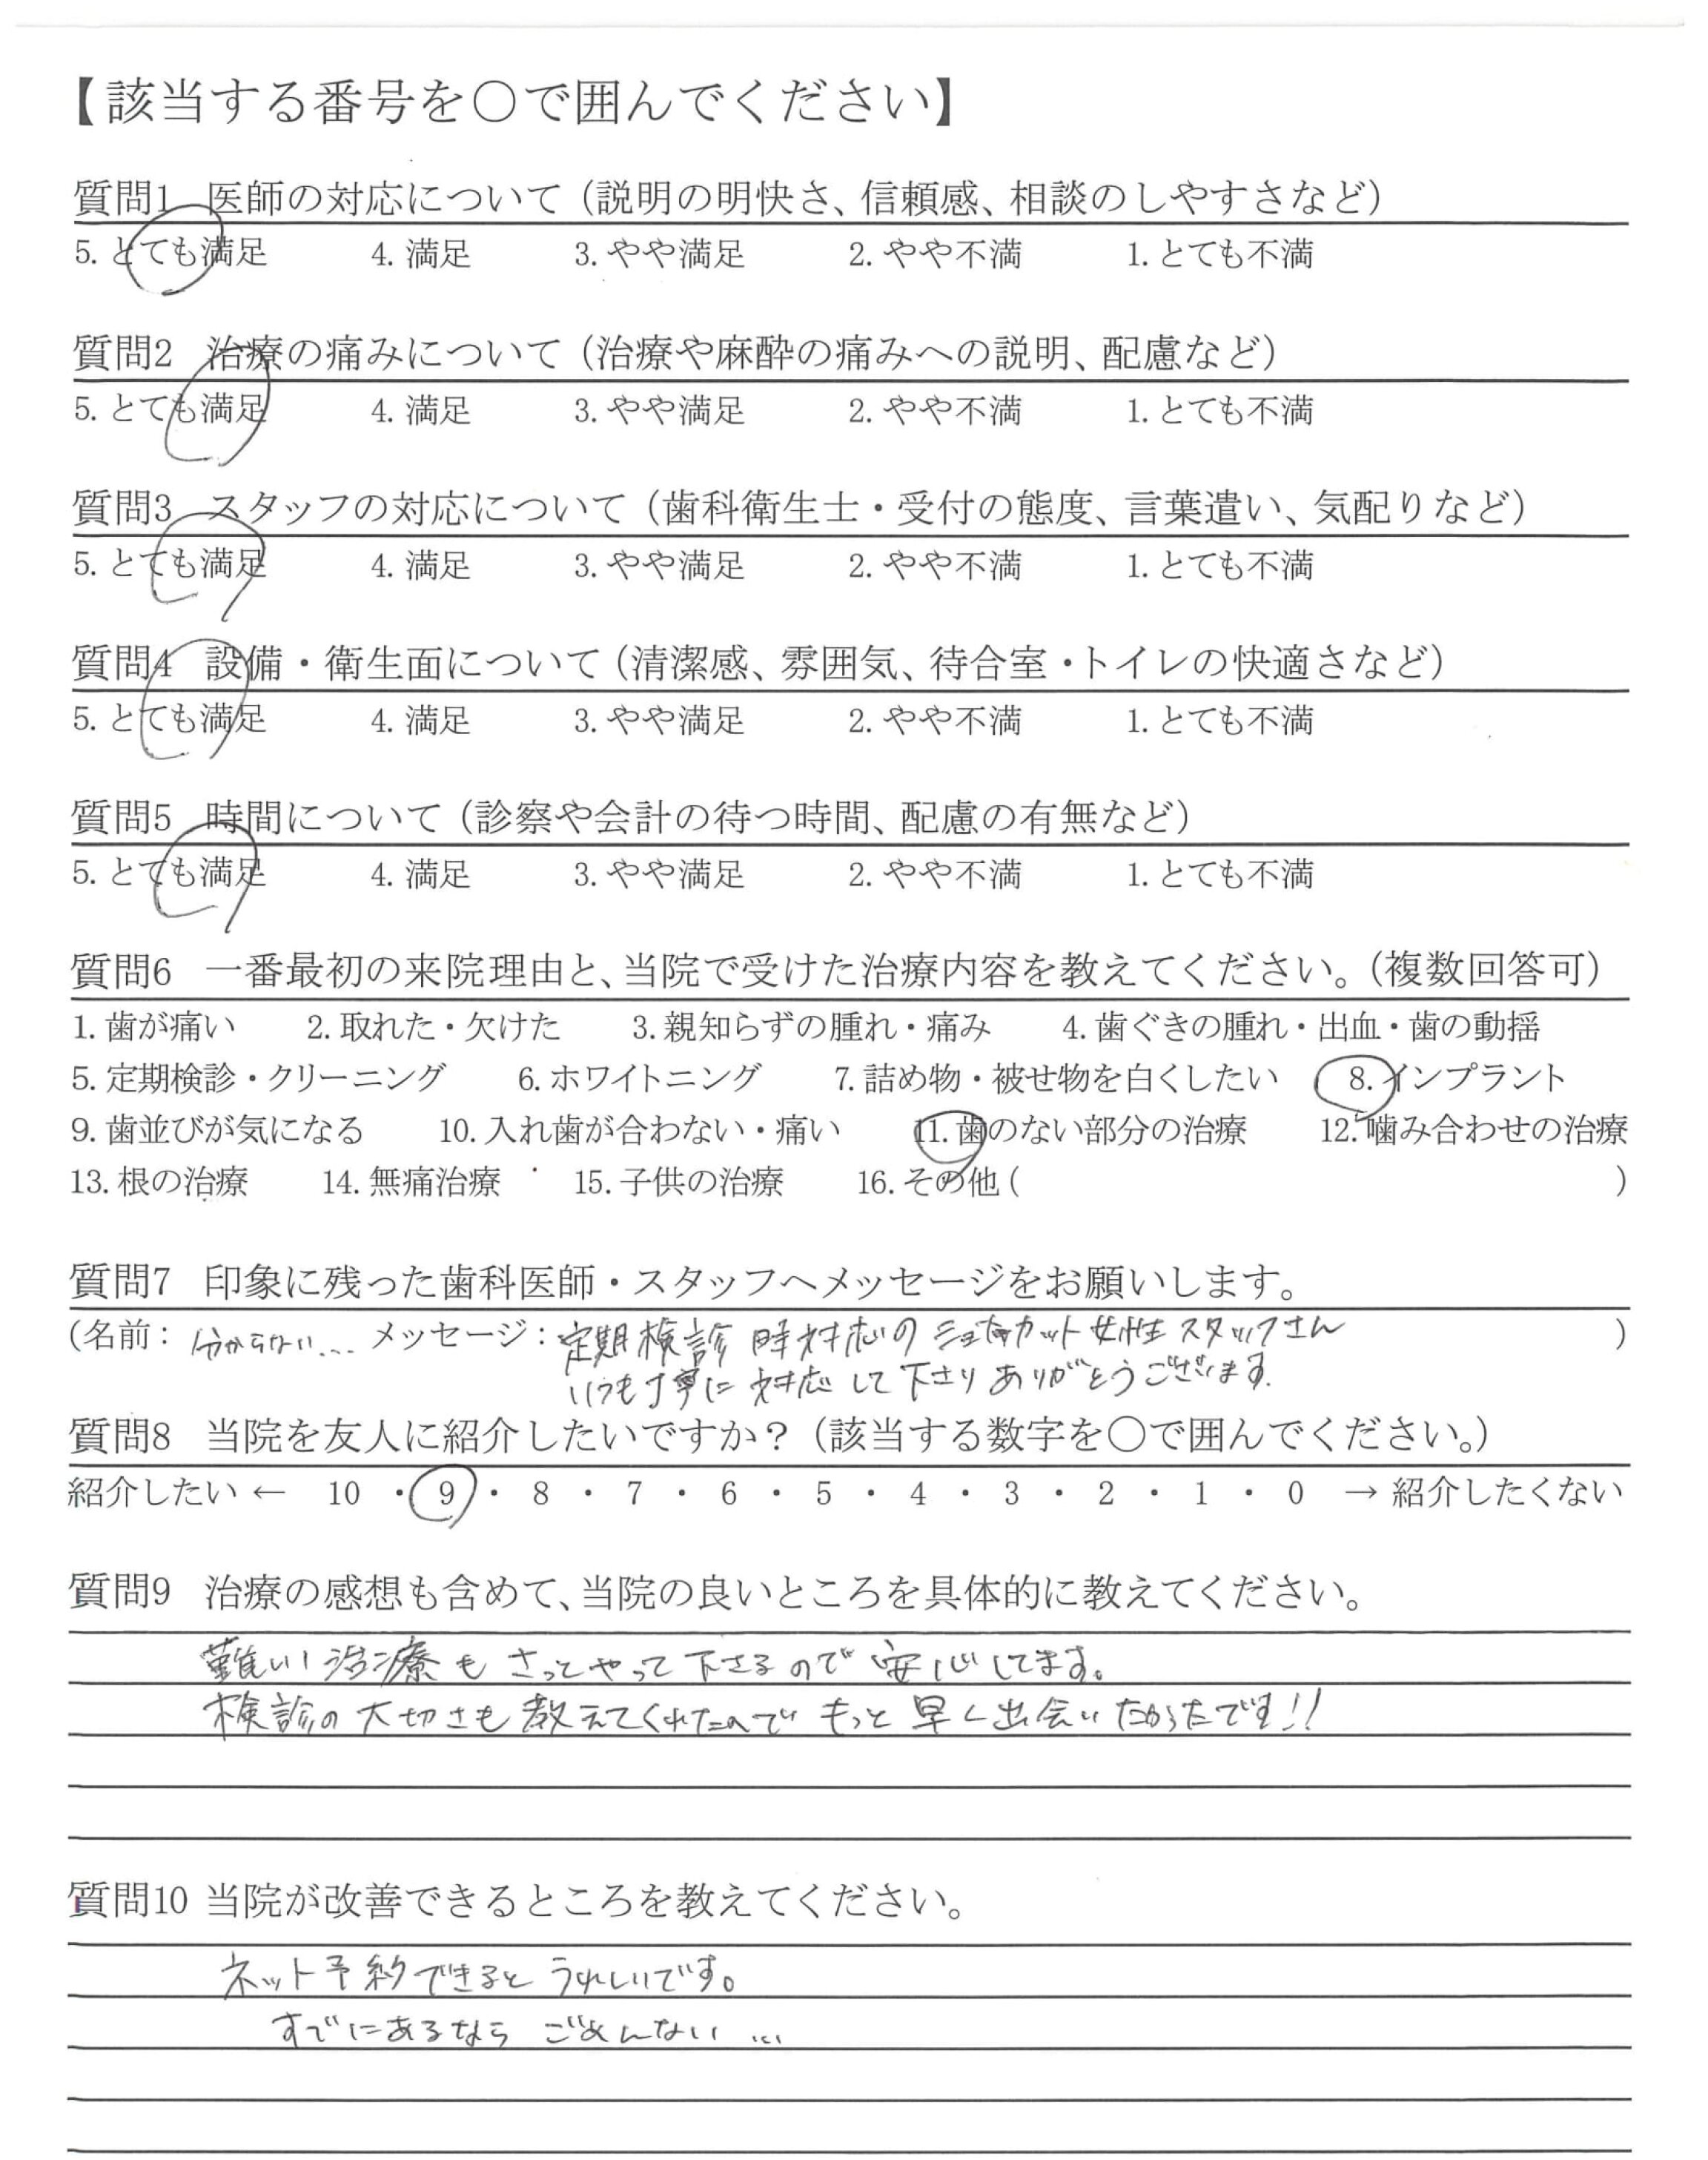 【該当する番号を○で囲んでください】
質問1 医師の対応について（説明の明快さ、信頼感、相談のしやすさなど）
5. とても満足 4. 満足 3. やや満足 2. やや不満 1. とても不満
質問2 治療の痛みについて（治療や麻酔の痛みへの説明、配慮など）
5. とても満足 4. 満足 3. やや満足 2. やや不満 1. とても不満
質問3 スタッフの対応について（歯科衛生士・受付の態度、言葉遣い、気配りなど）
5. とても満足 4. 満足 3. やや満足 2. やや不満 1. とても不満
質問4 設備・衛生面について（清潔感、雰囲気、待合室・トイレの快適さなど）
5. とても満足 4. 満足 3. やや満足 2. やや不満 1. とても不満
質問5 時間について（診察や会計の待つ時間、配慮の有無など）
5. とても満足 4. 満足 3. やや満足 2. やや不満 1. とても不満
質問6 一番最初の来院理由と、当院で受けた治療内容を教えてください。（複数回答可）
1. 歯が痛い 2. 取れた・欠けた 3. 親知らずの腫れ・痛み 4. 歯ぐきの腫れ・出血・歯の動揺
5. 定期検診・クリーニング 6. ホワイトニング 7. 詰め物・被せ物を白くしたい 8. インプラント
9. 歯並びが気になる 10. 入れ歯が合わない・痛い 11. 歯のない部分の治療 12. 噛み合わせの治療
13. 根の治療 14. 無痛治療 15. 子供の治療 16. その他（ ）
質問7 印象に残った歯科医師・スタッフへメッセージをお願いします。
（名前： 分からない… メッセージ： 定期検診 時対応の カット 女性 スタッフさん ）
いつも丁寧に 対応 して 下さり ありがとうございます.
質問8 当院を友人に紹介したいですか？（該当する数字を○で囲んでください。）
紹介したい ← 10 ・ 9 ・ 8 ・ 7 ・ 6 ・ 5 ・ 4 ・ 3 ・ 2 ・ 1 ・ 0 → 紹介したくない
質問9 治療の感想も含めて、当院の良いところを具体的に教えてください。
難しい治療も さっとやって下さるので 安心してます。
検診の大切さも教えてくれたので もっと早く出会いたかったです!!
質問10 当院が改善できるところを教えてください。
ネット予約できると うれしいです。
すでにあるなら ごめんない …